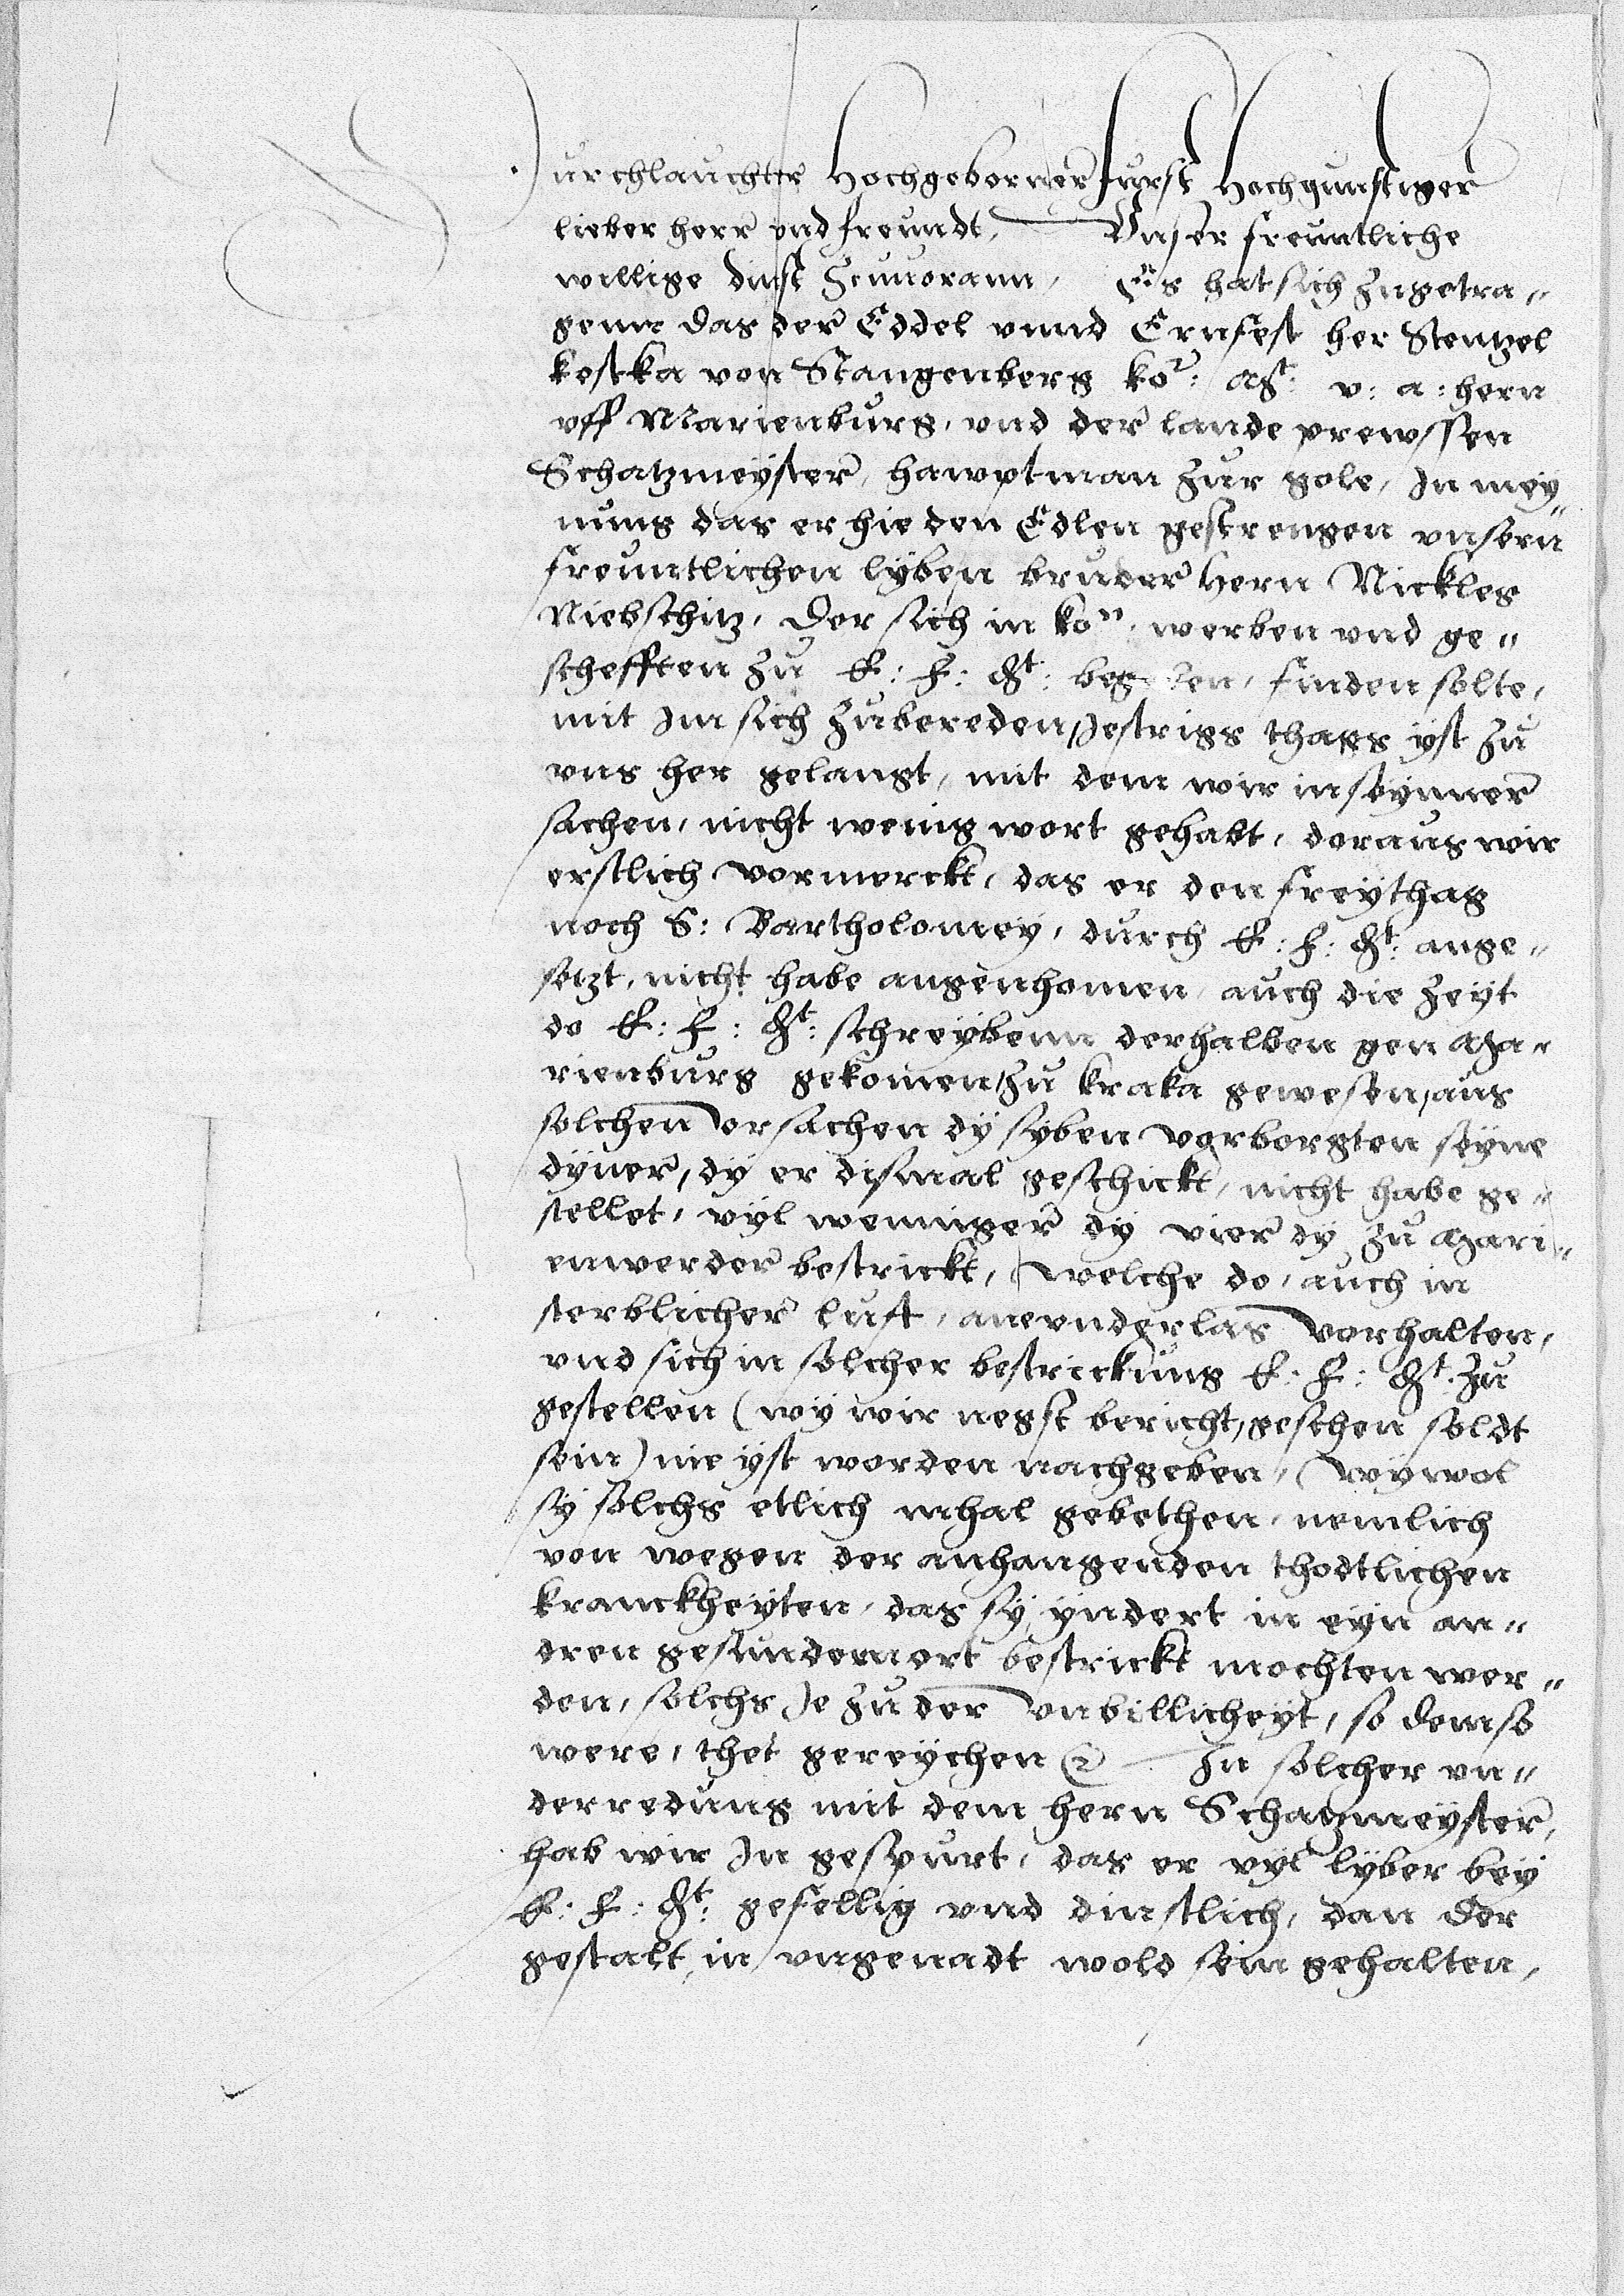 Durchlauchter Hochgeborner furst Hochgunstiger
lieber herr vnd freundt, Vnser freuntliche
willige dinst zcuuorann, Es hat sich zugetra„
genn das der Eddel vnnd Ernfest her Stentzel
kostka von Stangenberg ko͏ͬ: Mt: v: a: hern
vff Marienburg, vnd der lande prewssen
Schatzmeyster, hawptman zur gole, In mey„
nung das er hie den Edlen gestrengen vnsern
freuntlichen lyben bruder Hern Nickles
Niebschitz, der sich in kon. werben vnd ge„
schefften zu E: F: Gt: begeben, finden solte,
mit Im sich zubereden, Jestrigs thags yst zu
vns her gelangt, mit dem wir in seynner
sachen, nicht wenig wort gehabt, doraus wir
erstlich vormerckt, das er den freythag
noch S: Bartholomey, durch E: F: Gt: ange„
setzt, nicht habe angenhomen, auch die zeyt
do E: F: Gt: schreybenn derhalben gen Ma„
rienburg gekomen, zu kraka gewesen, aus
solchen vrsachen dy syben vorborgten seyne
dyner, dy er dismal geschickt, nicht habe ge„
stellet, vyl wenniger dy vier dy zu Mari„
enwerder bestrickt, welche do, auch in
sterblicher luft, ane vnderlas vorhalten,
vnd sich in solcher bestrickung E: F: Gt: zu
gestellen (wy wir negst bericht, geschen soldt
sein) nie yst worden nachgeben, wywol
sy solchs etlich mhal gebethen, nemlich
von wegen der anhangenden thodtlichen
kranckheyten, das sy yndert in eyn an„
dren gesundem ort bestrickt mochten wer„
den, solchs Je zu der vnbillicheyt, so dem so
were, thet gereychen In solcher vn„
derredung mit dem hern Schatzmeyster,
hab wir In gespurt, das er vyl lyber bey
E: F: Gt: gefellig vnd dinstlich, dan der
gestalt, in vngenadt wold sein gehalten,